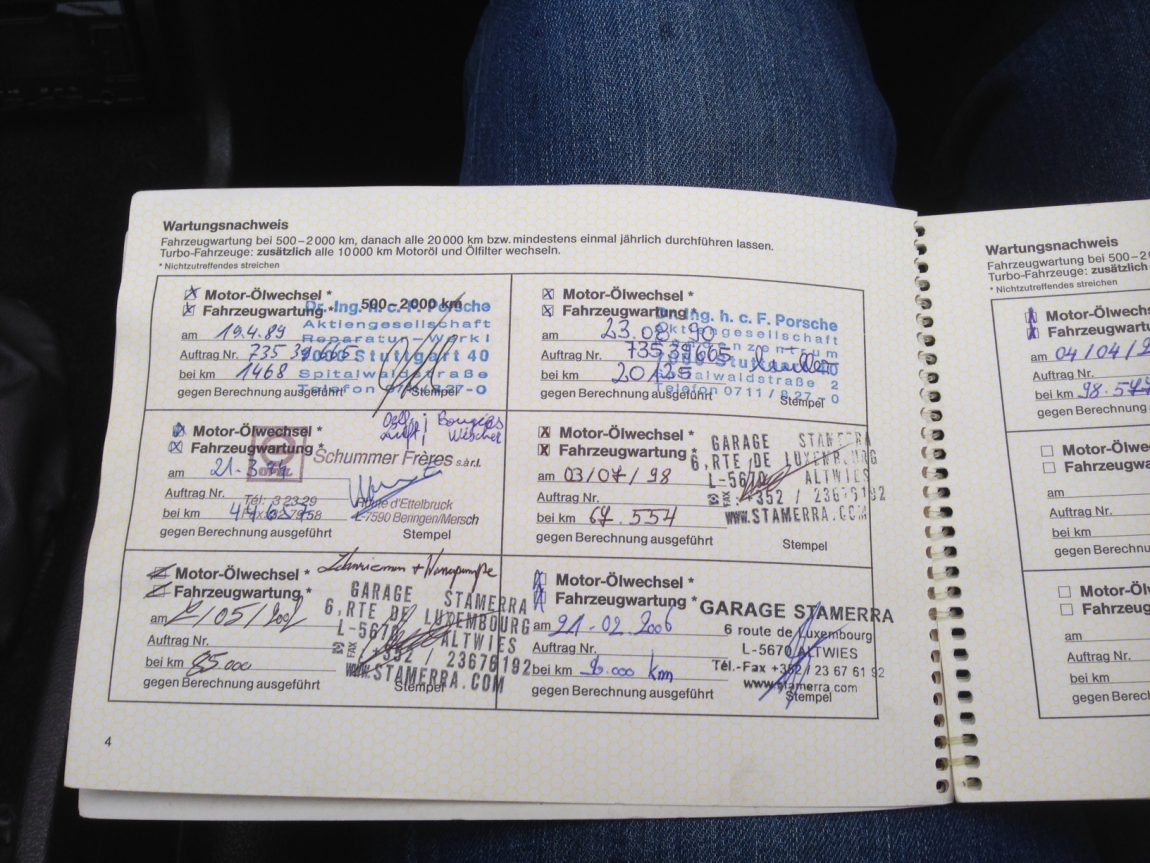 Wartungsnachweis
Fahrzeugwartung bei 500–2000 km, danach alle 20000 km bzw. mindestens einmal jährlich durchführen lassen.
Turbo-Fahrzeuge: zusätzlich alle 10000 km Motoröl und Ölfilter wechseln.
* Nichtzutreffendes streichen
Motor-Ölwechsel *
Fahrzeugwartung *
500–2000 km
am 19.4.89
Auftrag Nr. 735
bei km 1468
gegen Berechnung ausgeführt
Stempel
Dr. Ing. h. c. F. Porsche
Aktiengesellschaft
Reparatur-Werk I
Stuttgart 40
Spitalwaldstraße
Telefon
Motor-Ölwechsel *
Fahrzeugwartung *
am 23.08.90
Auftrag Nr. 735 39665
bei km 20125
gegen Berechnung ausgeführt
Stempel
Dr. Ing. h. c. F. Porsche
Aktiengesellschaft
Spitalwaldstraße 2
Telefon 0711 / 8 27 - 0
Motor-Ölwechsel *
Fahrzeugwartung *
am 21.3.
Auftrag Nr.
bei km
gegen Berechnung ausgeführt
Stempel
Schummer Frères s.à r.l.
Tél: 3 23 29
d'Ettelbruck
7590 Beringen/Mersch
Motor-Ölwechsel *
Fahrzeugwartung *
am 03/07/98
Auftrag Nr.
bei km 67.554
gegen Berechnung ausgeführt
Stempel
GARAGE STAMERRA
6, RTE DE LUXEMBOURG
L-5670 ALTWIES
FAX +352 / 23676192
WWW.STAMERRA.COM
Motor-Ölwechsel *
Fahrzeugwartung *
am
Auftrag Nr.
bei km 85.000
gegen Berechnung ausgeführt
Stempel
GARAGE STAMERRA
6, RTE DE LUXEMBOURG
L-5670 ALTWIES
FAX +352 / 23676192
WWW.STAMERRA.COM
Motor-Ölwechsel *
Fahrzeugwartung *
am 21.02.2006
Auftrag Nr.
bei km km
gegen Berechnung ausgeführt
Stempel
GARAGE STAMERRA
6 route de Luxembourg
L-5670 ALTWIES
Tél.-Fax +352 / 23 67 61 92
www.stamerra.com
4
Wartungsnachweis
Fahrzeugwartung bei 500–2
Turbo-Fahrzeuge: zusätzlich
* Nichtzutreffendes streichen
Motor-Ölwe
Fahrzeugwartu
am 04/04/2
Auftrag Nr.
bei km 98.577
gegen Berechnung
Motor-Ölw
Fahrzeugw
am
Auftrag Nr.
bei km
gegen Berechnung
Motor-Öl
Fahrzeug
am
Auftrag Nr.
bei km
gegen Berech